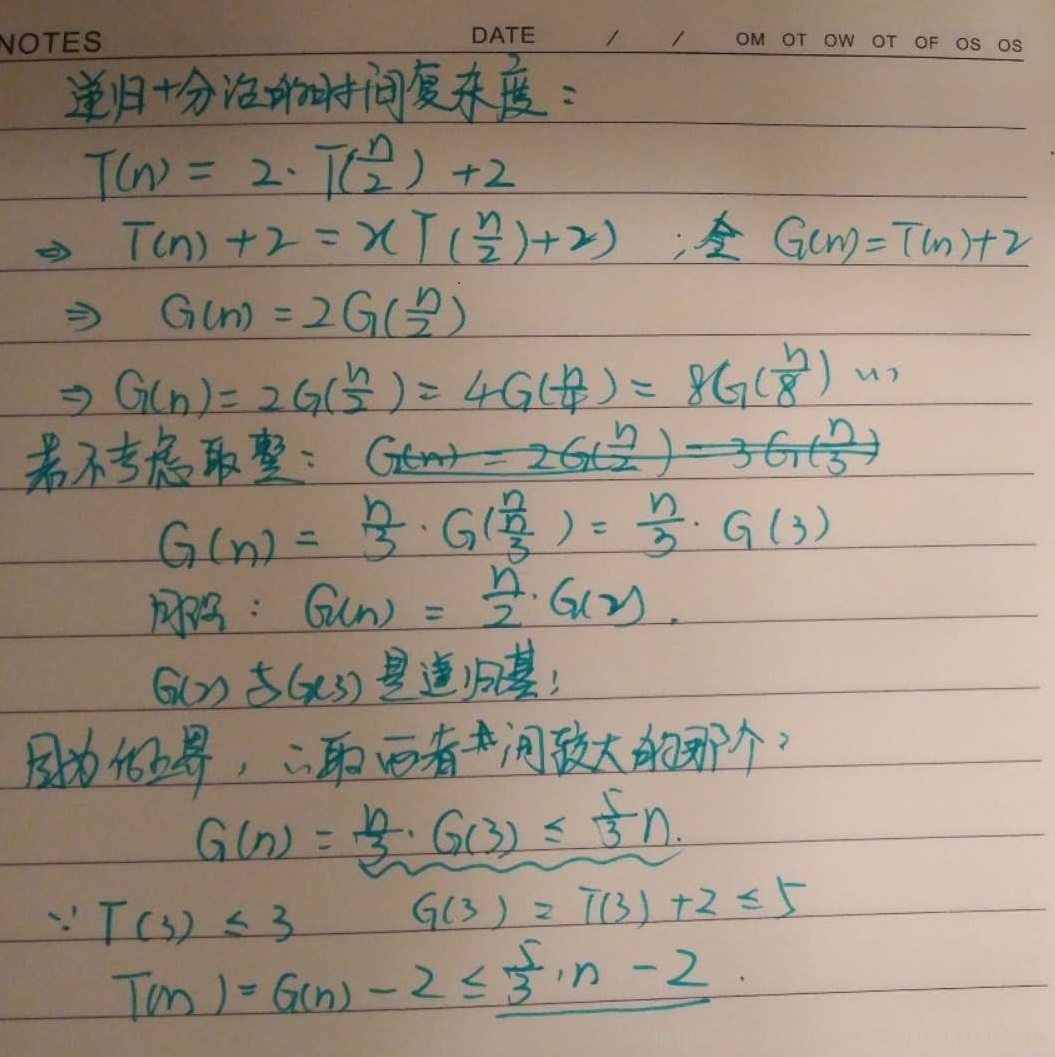 NOTES DATE / / OM OT OW OT OF OS OS
递归+分治的时间复杂度:
T(n) = 2·T(n/2) +2
⇒ T(n) + 2 = 2(T(n/2)+2) ; 令 G(n)=T(n)+2
⇒ G(n) = 2G(n/2)
⇒ G(n) = 2G(n/2) = 4G(n/4) = 8G(n/8) ...
若不考虑取整: G(n) = 2G(n/2) = 3G(n/3)
G(n) = n/3 · G(n/(n/3)) = n/3 · G(3)
同理: G(n) = n/2 · G(2).
G(2) 与 G(3) 是递归基;
因为 上界, ∴取两者中间较大的那个:
G(n) = n/3 · G(3) ≤ 5/3 n.
∵ T(3) ≤ 3 G(3) = T(3) +2 ≤ 5
T(n) = G(n) - 2 ≤ 5/3 · n - 2 .